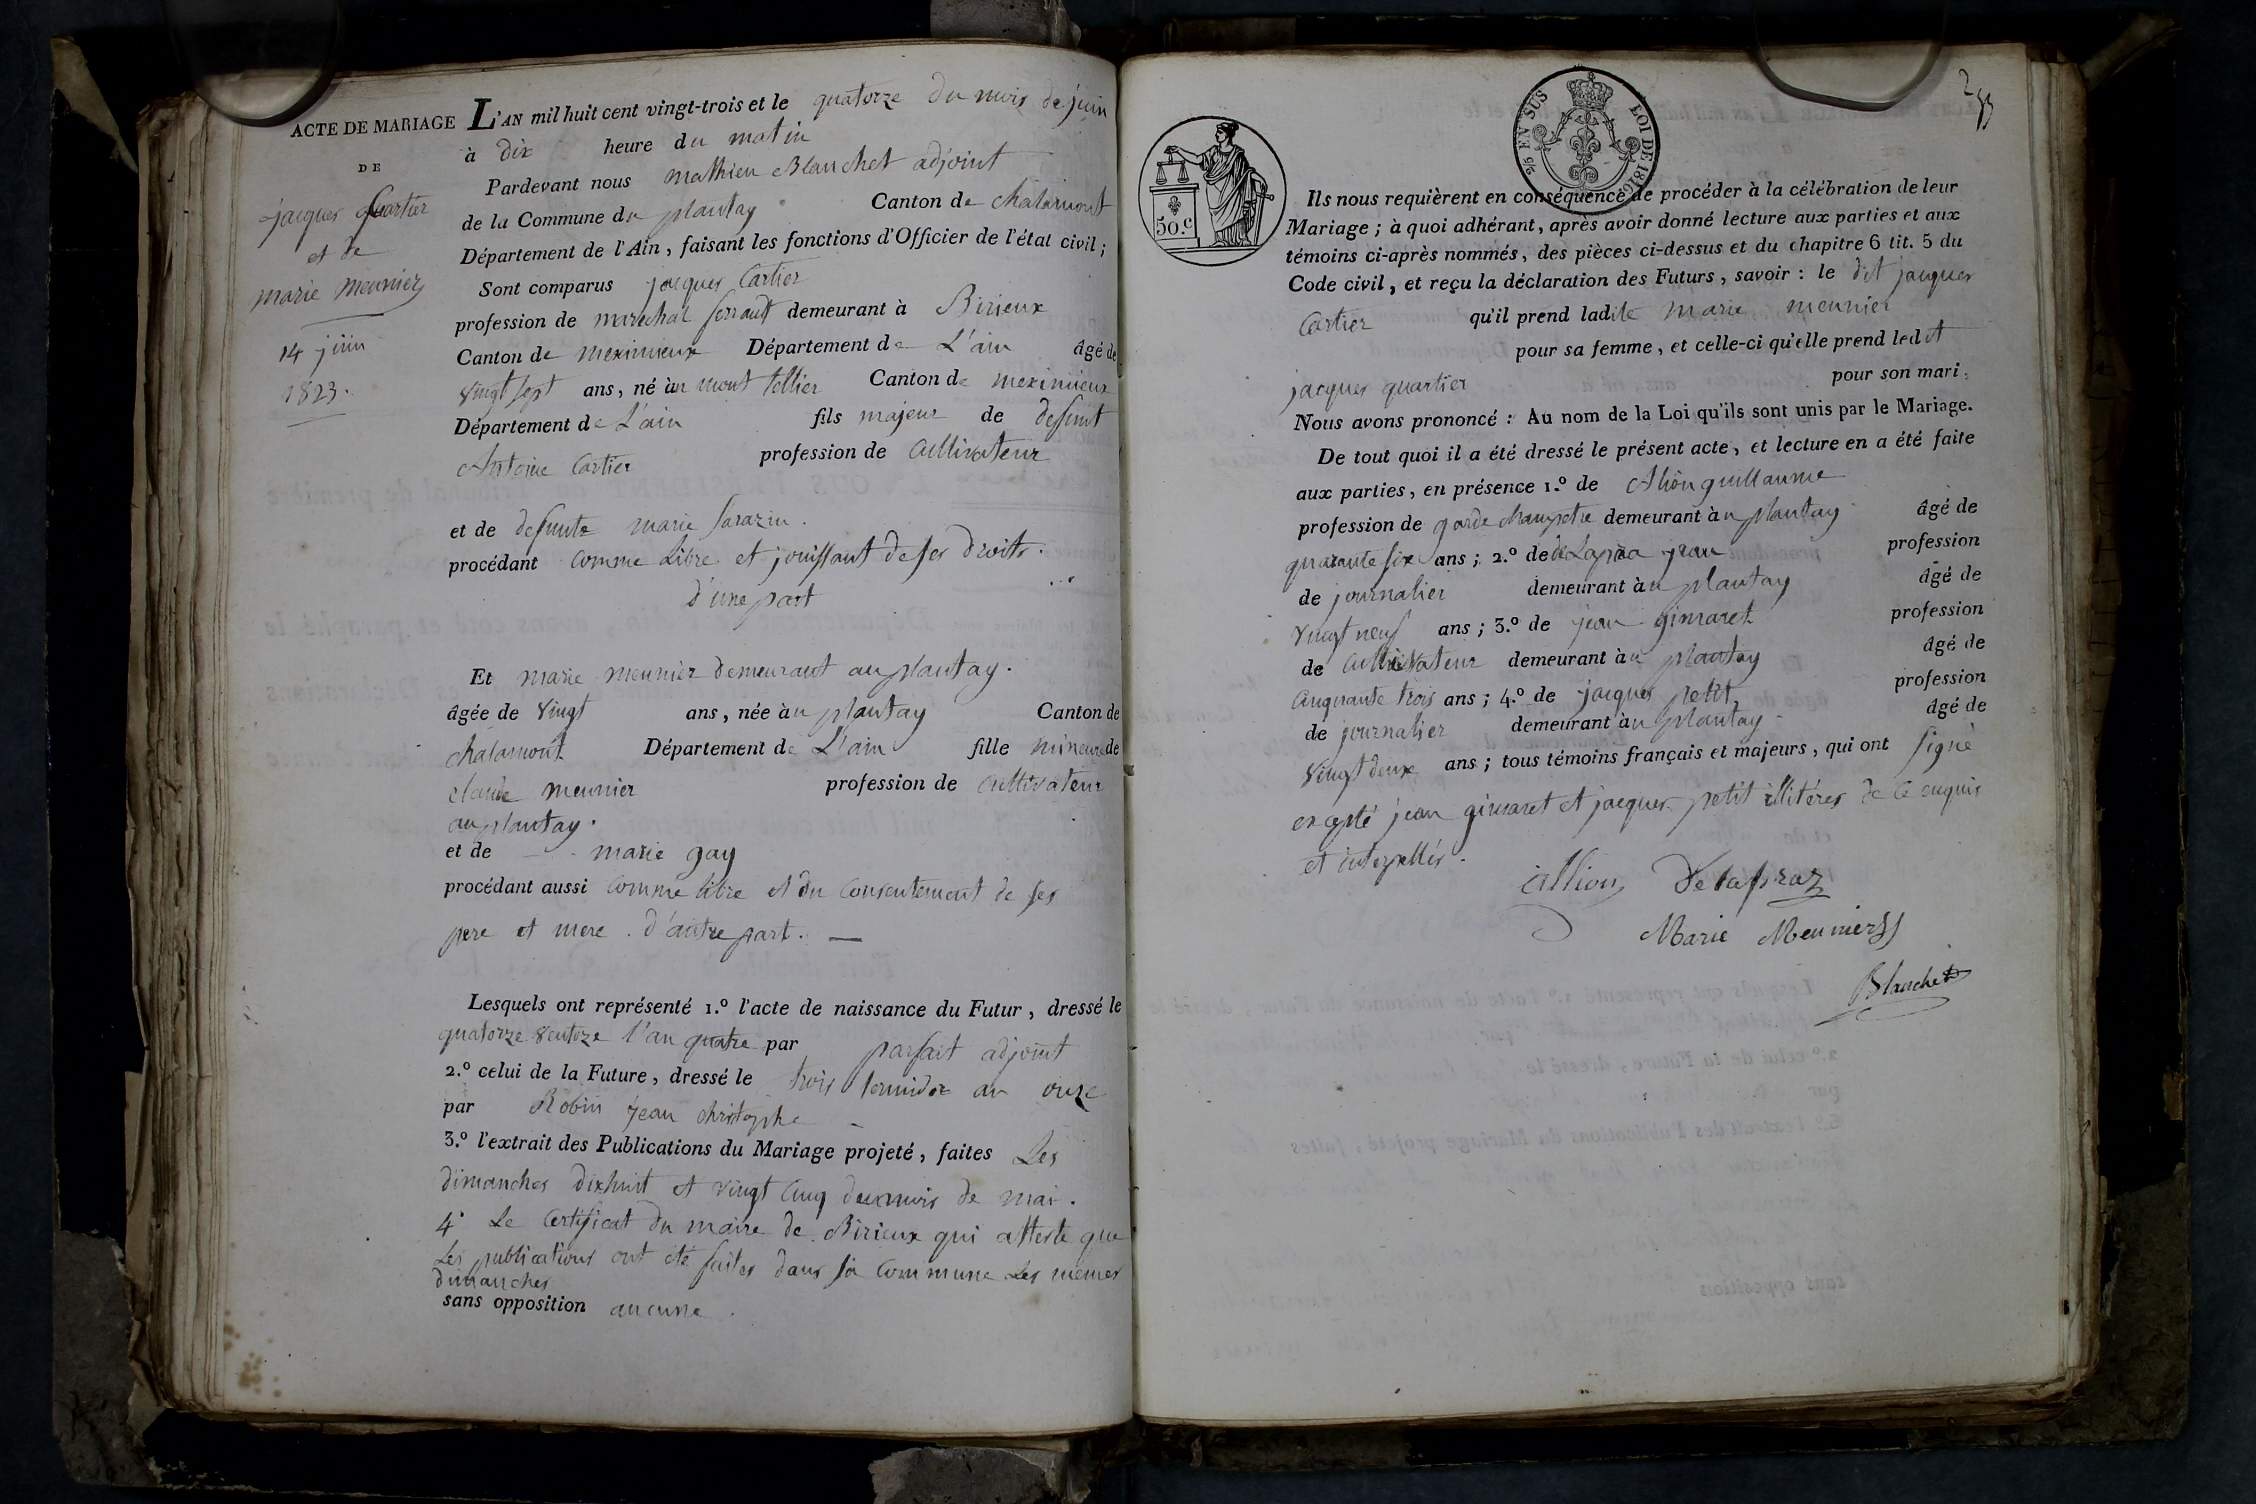 ACTE DE MARIAGE
DE
jacques quartier
et de
marie meunier
14 juin
1823.
L'AN mil huit cent vingt-trois et le quatorze du mois de juin
à dix heure du matin
Pardevant nous mathieu Blanchet adjoint
de la Commune du plantay Canton de chalamont
Département de l'Ain, faisant les fonctions d'Officier de l'état civil;
Sont comparus jacques Cartier
profession de marechal ferrant demeurant à Birieux
Canton de meximieux Département de L'ain âgé de
vingt sept ans, né àu mont tellier Canton de meximieux
Département de L'ain fils majeur de deffunt
Antoine Cartier profession de cultivateur
et de defunte marie Sarazin.
procédant comme libre et jouissant de ses droits.
d'une part
Et marie meunier demeurant au plantay.
âgée de vingt ans, née àu plantay Canton de
chalamont Département de L'ain fille mineure de
claude meunier profession de cultivateur
au plantay.
et de marie gay
procédant aussi comme libre et du consentement de ses
pere et mere. d'autre part.
Lesquels ont représenté 1.º l'acte de naissance du Futur, dressé le
quatorze ventoze l'an quatre par parfait adjoint
2.º celui de la Future, dressé le trois termidor an onze
par Robin jean christophe
3.º l'extrait des Publications du Mariage projeté, faites Les
dimanches dixhuit et vingt cinq du mois de mai.
4º Le Certificat du maire de Birieux qui atteste que
Les publications ont été faites dans sa Commune Les memes
dimanches
sans opposition aucune.
50.C
EN SUS
LOI DE 1816
Ils nous requièrent en conséquence de procéder à la célébration de leur
Mariage; à quoi adhérant, après avoir donné lecture aux parties et aux
témoins ci-après nommés, des pièces ci-dessus et du chapitre 6 tit. 5 du
Code civil, et reçu la déclaration des Futurs, savoir: le dit jacques
Cartier qu'il prend ladite marie meunier
pour sa femme, et celle-ci qu'elle prend ledit
jacques quartier pour son mari.
Nous avons prononcé: Au nom de la Loi qu'ils sont unis par le Mariage.
De tout quoi il a été dressé le présent acte, et lecture en a été faite
aux parties, en présence 1.º de Alion guillaume
profession de garde champetre demeurant àu plantay âgé de
quarante six ans; 2.º de jean profession
de journalier demeurant àu plantay âgé de
vingt neuf ans; 3.º de jean gimaret profession
de cultivateur demeurant àu plantay âgé de
cinquante trois ans; 4.º de jacques petit profession
de journalier demeurant àu plantay âgé de
vingt deux ans; tous témoins français et majeurs, qui ont signé
excepté jean gimaret et jacques petit illitéres de ce enquis
et interpellés.
Allion Delapraz
Marie Meunier
Blanchet